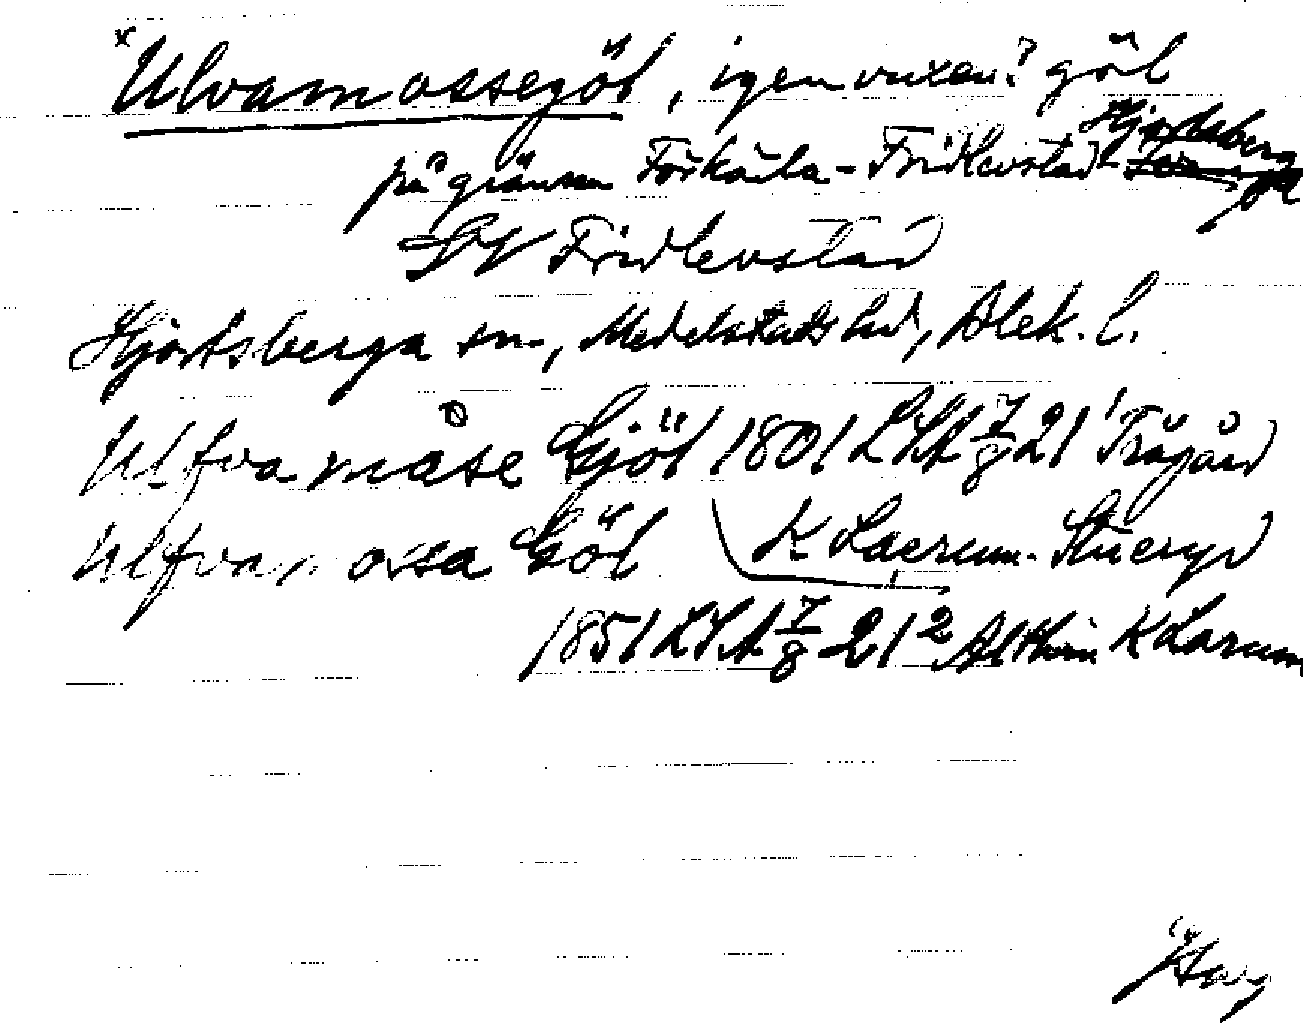 *Ulvamossegöl, igenvuxen? göl
på gränsen Förkärla-Fridlevstad-Hjortsberga
SV Fridlevstad
Hjortsberga sn, Medelstads hd, Blek. l.
Ulfvamåse Gjöl 1801 LSA 7/8 21¹ Trägård
Ulfvamossa Göl K Laerum-Stueryd
1851 LSA 7/8 21² Althin K Larum